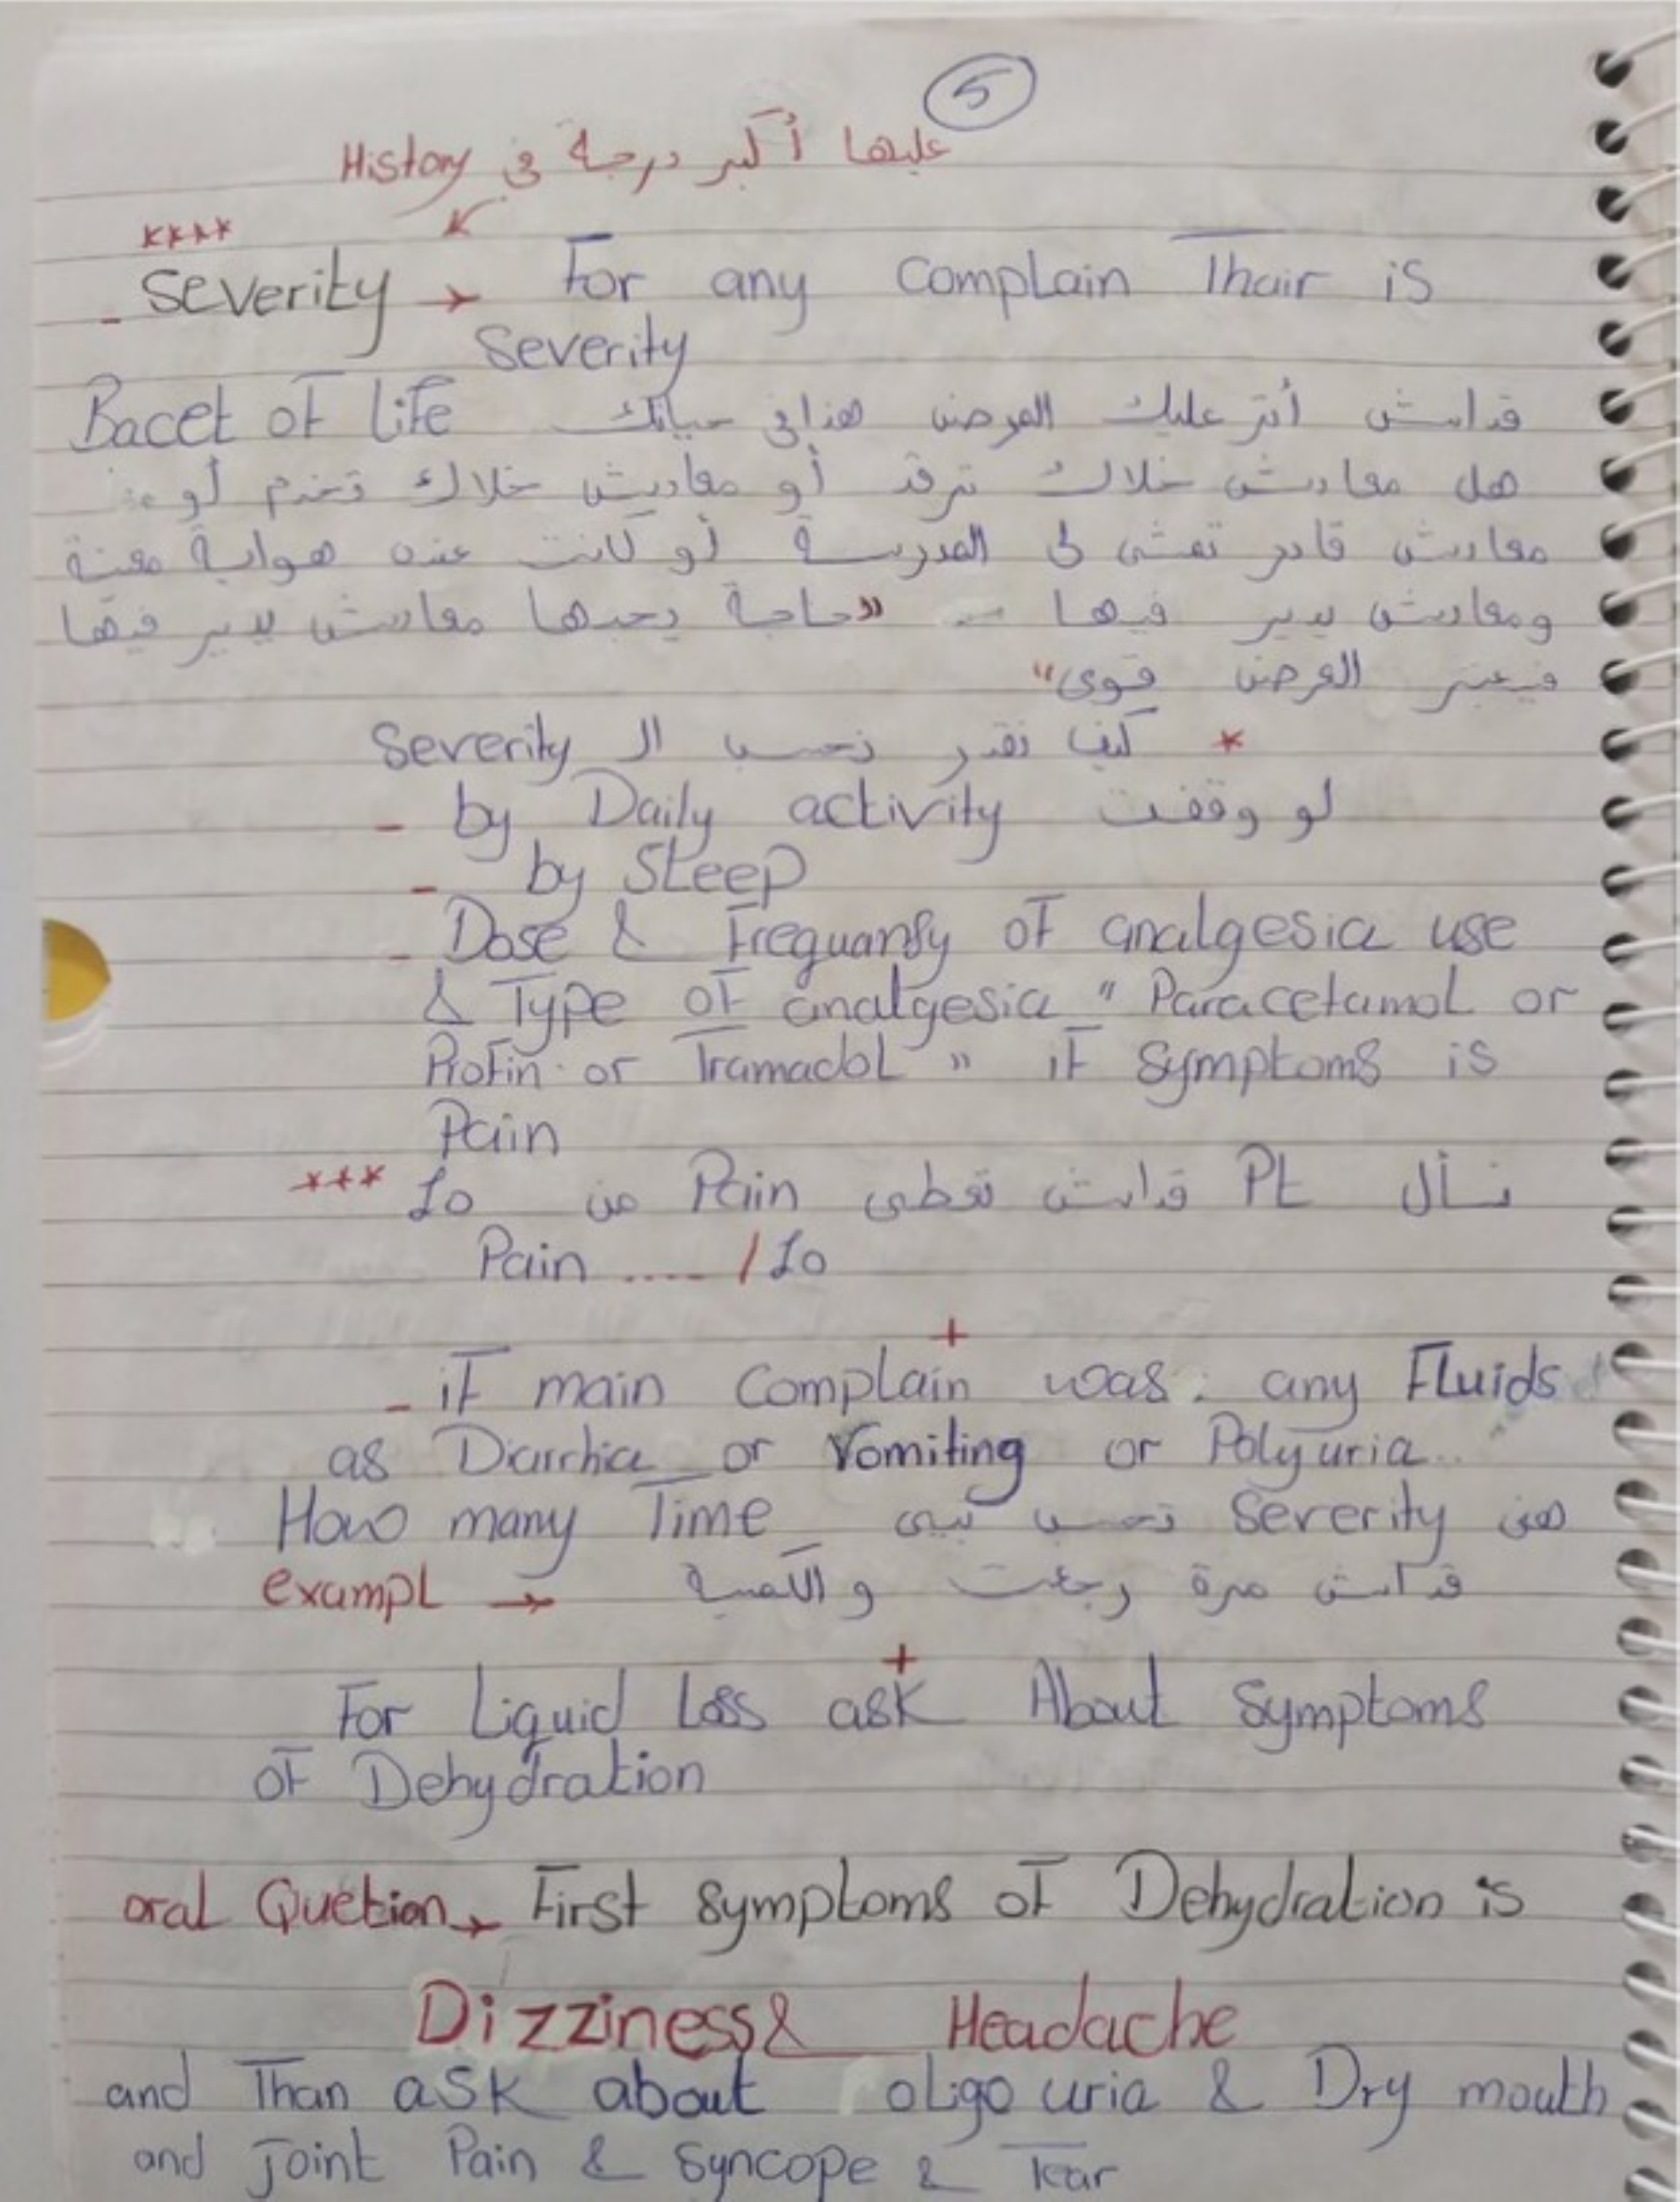 5
عليها أكبر درجة في History
****
- Severity → For any Complain Thair is
Severity
قداش أثر عليك المرض هذا في حياتك Bacet of Life
هل معادش خلاك ترقد أو معاديش خلاك تخدم أو
معادش قادر تمشي لـ المدرسة أو كانت عنده هواية معينة
ومعادش يدير فيها - «حاجة يحبها معادش يدير فيها
فيعتبر المرض قوي"
* كيف نقدر نحسب الـ Severity
- by Daily activity لو وقفت
- by Sleep
- Dose & Frequansy of analgesia use
& Type of analgesia " Paracetamol or
Profin or Tramadol " if Symptoms is
Pain
*** نسأل Pt قداش تعطي Pain من 10
Pain .... / 10
+
- if main Complain was : any Fluids
as Diarrhia or Vomiting or Polyuria ..
هني Severity تحسب How many Time
exampl → قداش مرة رجعت و الكمية
+
For Liquid Loss ask About Symptoms
of Dehydration
oral Quetion → First symptoms of Dehydration is
Dizziness & Headache
and Than ask about oligo uria & Dry mouth
and Joint Pain & Syncope & Tear